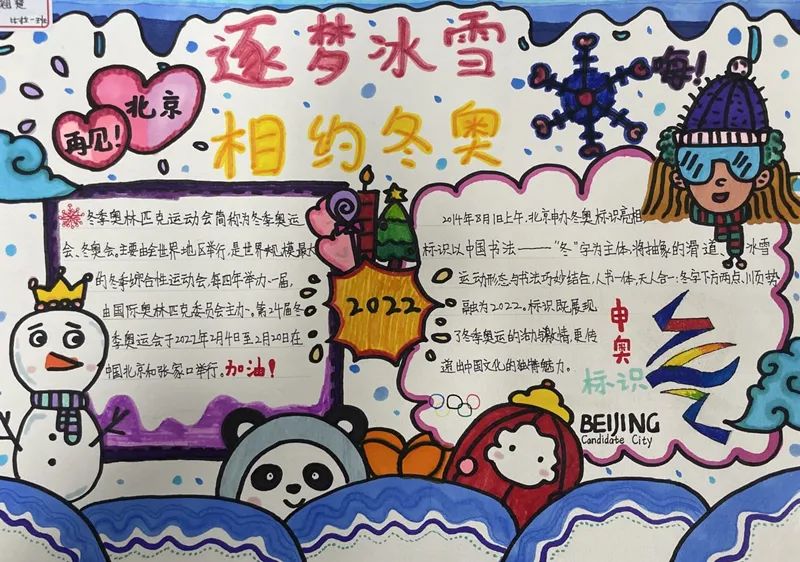 逐梦冰雪
相约冬奥
北京
再见!
嗨!
冬季奥林匹克运动会简称为冬季奥运
会、冬奥会。主要由全世界地区举行,是世界规模最大
的冬季综合性运动会,每四年举办一届,
由国际奥林匹克委员会主办。第24届冬
季奥运会于2022年2月4日至2月20日在
中国北京和张家口举行。加油!
2022
2014年8月1日上午,北京申办冬奥标识亮相
标识以中国书法——“冬”字为主体,将抽象的滑道、冰雪
运动形态与书法巧妙结合,人书一体,天人合一;冬字下方两点,顺势
融为2022。标识既展现
了冬季奥运的活力与激情,更传
递出中国文化的独特魅力。
申奥
标识
BEIJING
Candidate City